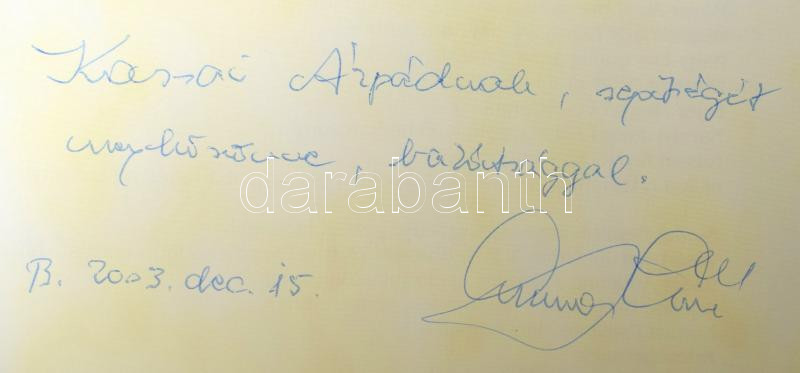 Kassai Árpádnak, segítségét
megköszönve, barátsággal.
darabanth
B. 2003. dec. 15.